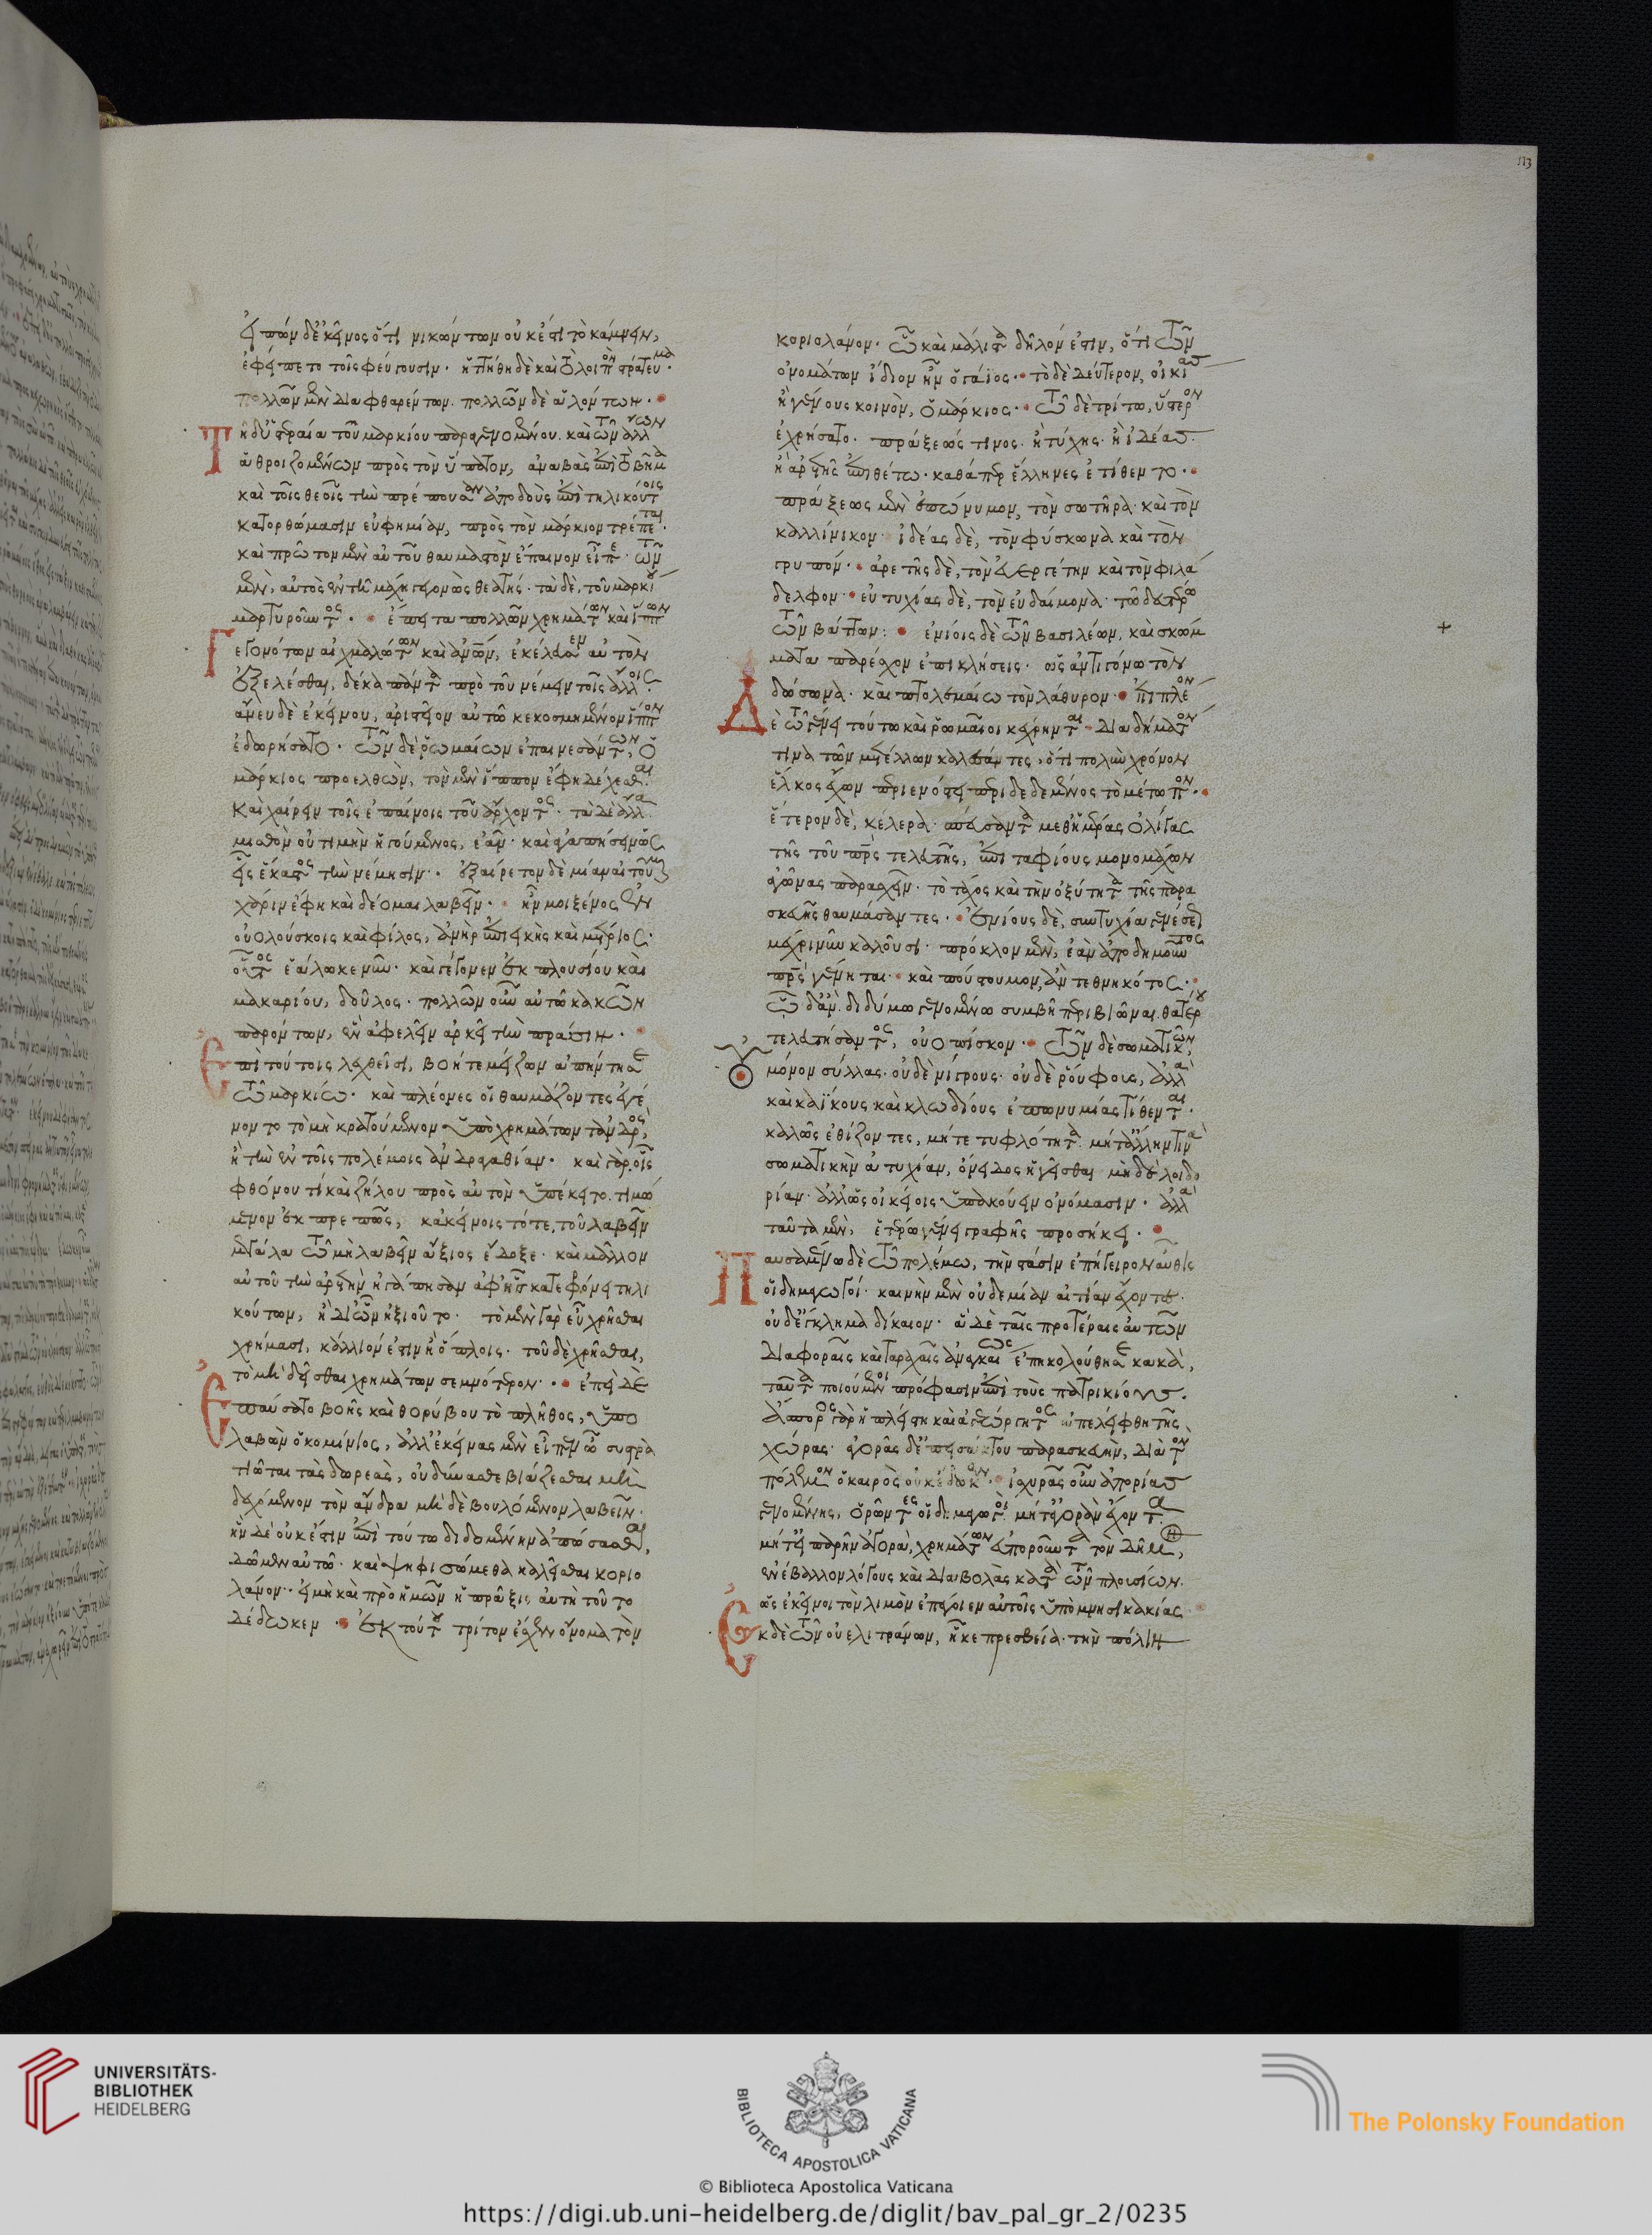 εἰπὼν δἐκεῖνος ὅτι νικώντων οὐκ ἔστι τὸ κάμνειν,
ἐφείπετο τοῖς φεύγουσιν. ἡττήθη δὲ καὶ τὸ λοιπὸν στράτευμα.
πολλῶν μὲν διαφθαρέντων. πολλῶν δὲ ἁλόντων.
Τῆ δ' ὑστεραία τοῦ μαρκίου παραγενομένου. καὶ τῶν ἄλλων
ἀθροιζομένων πρὸς τὸν ὕπατον, ἀναβὰς ἐπὶ τὸ βῆμα
καὶ τοῖς θεοῖς τὴν πρέπουσαν ἀποδοὺς ἐπὶ τηλικούτοις
κατορθώμασιν εὐφημίαν, πρὸς τὸν μάρκιον τρέπεται.
καὶ πρῶτον μὲν αὐτοῦ θαυμαστὸν ἔπαινον εἶπε. τῶν
μὲν, αὐτὸς ἐν τῆ μάχη γεγονὼς θεατής. τὰ δὲ, τοῦ μαρκίου
μαρτυροῦντος. ἔπειτα πολλῶν χρημάτων καὶ ἵππων
Γεγονότων αἰχμαλώτων καὶ ἀνθρώπων, ἐκέλευσεν αὐτὸν
ἐξελέσθαι, δέκα πάντα πρὸ τοῦ νέμειν τοῖς ἄλλοις.
ἄνευ δὲ ἐκείνου, ἀριστεῖον αὐτῶ κεκοσμημένον ἵππον
ἐδωρήσατο. τῶν δὲ ῥωμαίων ἐπαινεσάντων, ὁ
μάρκιος προελθὼν, τὸν μὲν ἵππον ἔφη δέχεσθαι.
καὶ χαίρειν τοῖς ἐπαίνοις τοῦ ἄρχοντος. τὰ δὲ ἄλλα.
μισθὸν οὐ τιμὴν ἡγούμενος, ἐᾶν. καὶ ἀγαπήσειν ὡς
εἷς ἕκαστος τὴν νέμησιν. ἐξαίρετον δὲ μίαν αἰτοῦμαι
χάριν ἔφη καὶ δέομαι λαβεῖν. ἦν μοι ξένος ἐν
οὐολούσκοις καὶ φίλος, ἀνὴρ ἐπιεικὴς καὶ μέτριος.
οὗτος ἑάλωκε νῦν. καὶ γέγονεν ἐκ πλουσίου καὶ
μακαρίου, δοῦλος. πολλῶν οὖν αὐτῶ κακῶν
παρόντων, ἓν ἀφελεῖν ἀρκεῖ τὴν πρᾶσιν.
Ἐπὶ τούτοις λεχθεῖσι, βοή τε μείζων ἀπήντησε
τῶ μαρκίω. καὶ πλέονες οἱ θαυμάζοντες ἐγέ
νοντο τὸ μὴ κρατούμενον ὑπὸ χρημάτων τἀνδρός,
ἢ τὴν ἐν τοῖς πολέμοις ἀνδραγαθίαν. καὶ γὰρ οἷς
φθόνου τί καὶ ζήλου πρὸς αὐτὸν ὑπέκειτο. τιμώ
μενον ἐκπρεπῶς, κἀκείνοις τότε, τοῦ λαβεῖν
μεγάλα τῶ μὴ λαβεῖν ἄξιος ἔδοξε. καὶ μᾶλλον
αὐτοῦ τὴν ἀρετὴν ἠγάπησαν ἀφ' ἧς κατεφρόνει τηλι
κούτων, ἢ δι' ὧν ἠξιοῦτο. τὸ μὲν γὰρ εὖ χρῆσθαι
χρήμασι, κάλλιόν ἐστιν ἢ ὅπλοις. τοῦ δὲ χρῆσθαι,
τὸ μὴ δεῖσθαι χρημάτων σεμνότερον. ἐπεὶ δὲ
Ἐπαύσατο βοῆς καὶ θορύβου τὸ πλῆθος, ὑπο
λαβὼν ὁ κομίνιος, ἀλλ' ἐκείνας μὲν εἶπεν ὦ συστρα
τιῶται τὰς δωρεὰς, οὐ δύνασθε βιάζεσθαι μὴ
δεχόμενον τὸν ἄνδρα μὴ δὲ βουλόμενον λαβεῖν.
ἣν δὲ οὐκ ἔστιν ἐπὶ τούτω διδομένην ἀπώσασθαι,
δῶμεν αὐτῶ. καὶ ψηφισώμεθα καλεῖσθαι κοριο
λανον. εἰ μὴ καὶ πρὸ ἡμῶν ἡ πρᾶξις αὐτὴ τοῦτο
δέδωκεν. ἐκ τούτου τρίτον ἔσχεν ὄνομα τὸν
κοριολανον. ὧ καὶ μάλιστα δῆλόν ἐστιν, ὅτι τῶν
ὀνομάτων ἴδιον ἦν ὁ γάϊος. τὸ δὲ δεύτερον, οἰκίας
ἢ γένους κοινὸν, ὁ μάρκιος. τῶ δὲ τρίτω, ὕστερον
ἐχρήσατο. πράξεώς τινος. ἢ τύχης. ἢ ἰδέας.
ἢ ἀρετῆς ἐπιθέτω. καθάπερ ἕλληνες ἐτίθεντο.
πράξεως μὲν ἐπώνυμον, τὸν σωτῆρα. καὶ τὸν
καλλίνικον. ἰδέας δὲ, τὸν φύσκωνα καὶ τὸν
γρυπόν. ἀρετῆς δὲ, τὸν εὐεργέτην καὶ τὸν φιλά
δελφον. εὐτυχίας δὲ, τὸν εὐδαίμονα. τῶ δευτέρω
τῶν βάττων. ἐνίοις δὲ τῶν βασιλέων, καὶ σκώμ
ματα παρέσχον ἐπικλήσεις. ὡς ἀντιγόνω τὸν
δώσωνα. καὶ πτολεμαίω τὸν λάθυρον. ἐπιπλέον
Δὲ τῶ γένει τούτω καὶ ῥωμαῖοι κέχρηνται. διαδήματον
τινα τῶν μετέλλων καλέσαντες, ὅτι πολὺν χρόνον
ἕλκος ἔχων περιενόστει περιδεδεμένος τὸ μέτωπον.
ἕτερον δὲ, κέλερα. σπεύσαντα μεθ' ἡμέρας ὀλίγας
τῆς τοῦ πατρὸς τελευτῆς, ἐπιταφίους μονομάχων
ἀγῶνας παρασχεῖν. τὸ τάχος καὶ τὴν ὀξύτητα τῆς παρα
σκευῆς θαυμάσαντες. ἐνίους δὲ, συντυχία γενέσεως
μέχρι νῦν καλοῦσι. πρόκλον μὲν, ἐὰν ἀποδημοῦντος
πατρὸς γένηται. καὶ πόστουμον, ἂν τεθνηκότος.
ὧ δ' ἂν διδύμω γενομένω συμβῆ περιβιῶναι θατέρου
τελευτήσαντος, οὐοπίσκον. τῶν δὲ σωματικῶν,
μόνον σύλλας. οὐδὲ νίγρους. οὐδὲ ῥούφους, ἀλλὰ
καὶ καίκους καὶ κλωδίους ἐπωνυμίας τίθενται.
καλῶς ἐθίζοντες, μήτε τυφλότητα. μήτ' ἄλλην τινὰ
σωματικὴν ἀτυχίαν, ὄνειδος ἡγεῖσθαι μὴ δὲ λοιδο
ρίαν. ἀλλ' ὡς οἰκείοις ὑπακούειν ὀνόμασιν. ἀλλὰ
ταῦτα μὲν, ἑτέρω γένει γραφῆς προσήκει.
Παυσαμένω δὲ τῶ πολέμω, τὴν στάσιν ἐπήγειρον αὖθις
οἱ δημαγωγοί. καινὴν μὲν οὐδεμίαν αἰτίαν ἔχοντες.
οὐδ' ἔγκλημα δίκαιον. ἃ δὲ ταῖς προτέραις αὐτῶν
διαφοραῖς καὶ ταραχαῖς ἀναγκαίως ἐπηκολούθησε κακά,
ταῦτα ποιούμενοι πρόφασιν ἐπὶ τοὺς πατρικίους.
ἄσπορος γὰρ ἡ πλείστη καὶ ἀγεώργητος ἀπελείφθη τῆς
χώρας. ἀγορᾶς δ' ἐπεισάκτου παρασκευὴν, διὰ τὸν
πόλεμον ὁ καιρὸς οὐκ ἔδωκεν. ἰσχυρᾶς οὖν ἀπορίας
γενομένης, ὁρῶντες οἱ δημαγωγοὶ μήτ' ἀγορὰν ἔχοντα
μήτ' εἰ παρῆν ἀγορὰ, χρημάτων εὐποροῦντα τὸν δῆμον,
ἐνέβαλλον λόγους καὶ διαβολὰς κατὰ τῶν πλουσίων.
ὡς ἐκεῖνοι τὸν λιμὸν ἐπάγοιεν αὐτοῖς ὑπὸ μνησικακίας.
Ἐκ δὲ τῶν οὐελιτράνων, ἧκε πρεσβεία. τὴν πόλιν
UNIVERSITÄTS-
BIBLIOTHEK
HEIDELBERG
BIBLIOTECA APOSTOLICA VATICANA
The Polonsky Foundation
© Biblioteca Apostolica Vaticana
https://digi.ub.uni-heidelberg.de/diglit/bav_pal_gr_2/0235